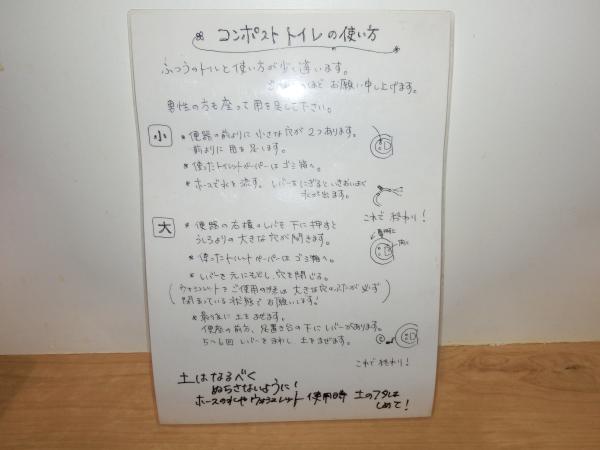 コンポスト トイレの使い方
ふつうのトイレと使い方が少し違います。
お願い申し上げます。
男性の方も座って用を足して下さい。
小
* 便器の前よりに小さな穴が2つあります。
前よりに用を足します。
* 使ったトイレットペーパーはゴミ箱へ。
* ホースで水を流す。レバーをにぎるといきおいよく
水が出ます。
これで終わり!
大
* 便器の右横のレバーを下に押すと
うしろよりの大きな穴が開きます。
* 使ったトイレットペーパーはゴミ箱へ。
* レバーを元にもどし、穴を閉じる。
(ウォシュレットをご使用の時は大きな穴のふたが必ず
閉まっている状態でお願いします。)
* 最後に土をまぜます。
便器の前方、足置き台の下にレバーがあります。
5〜6回レバーをまわし、土をまぜます。
これで終わり!
土はなるべく
ぬらさないように!
ホースの水やウォシュレット使用時 土のフタは
しめて!